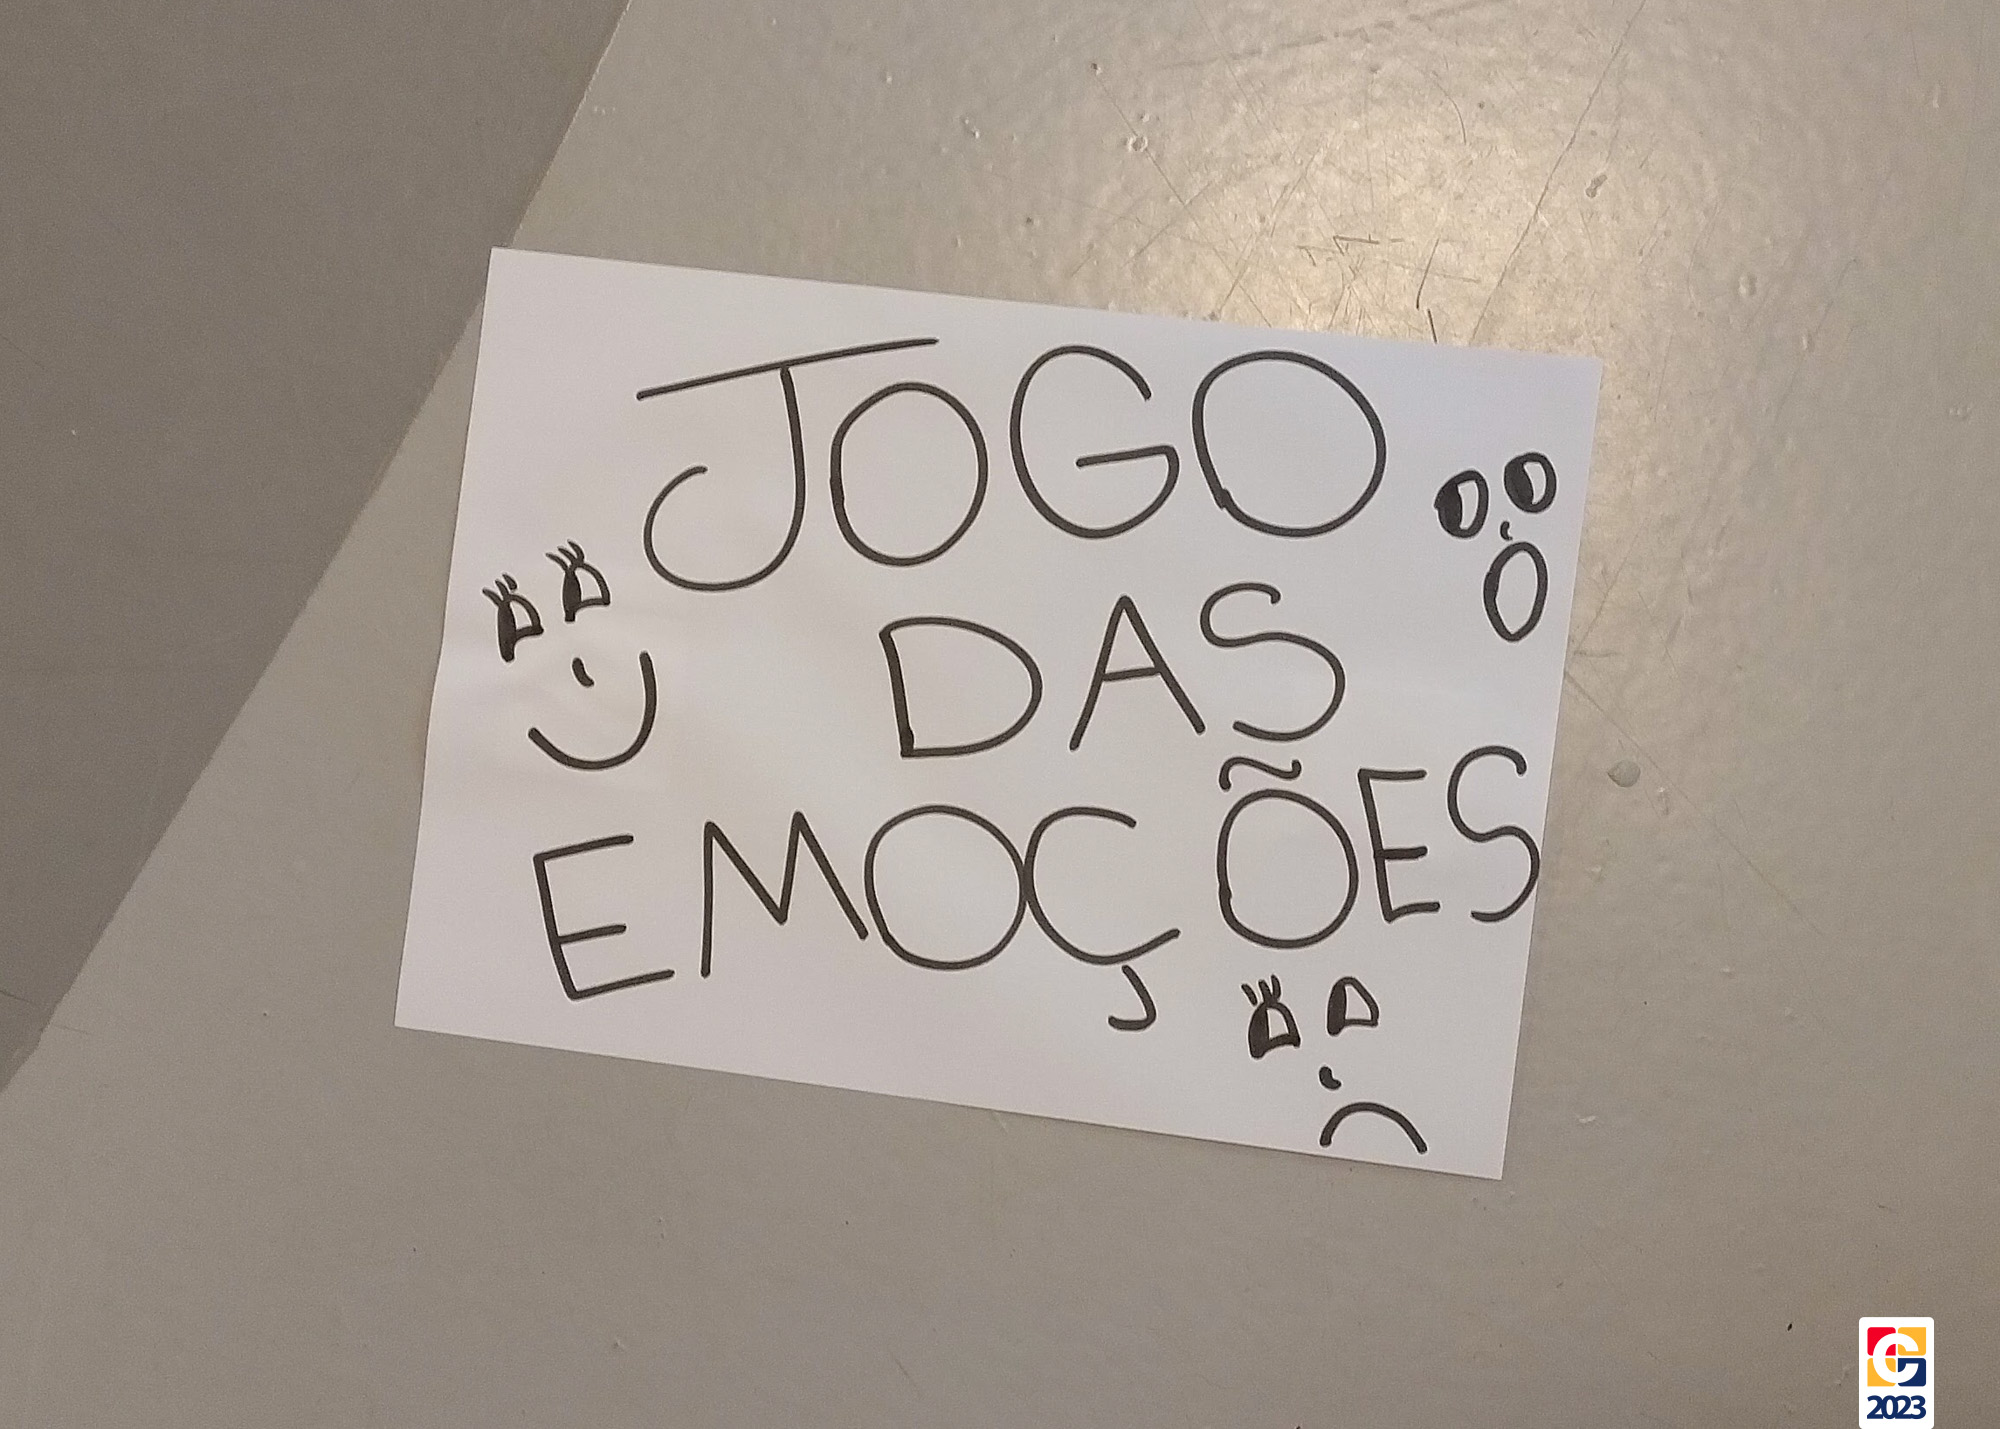 JOGO
DAS
EMOÇÕES
2023